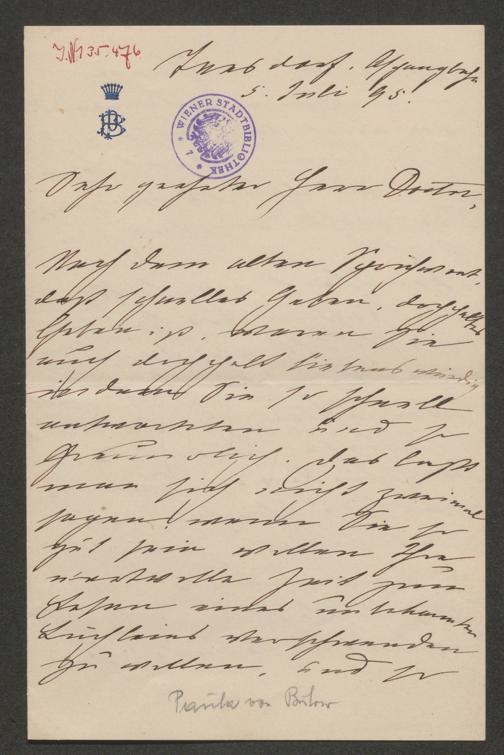 J.N 135.476
5. Juli 95.
WIENER STADTBIBLIOTHEK
Sehr geehrter Herr Doctor,
Nach dem alten Sprichwort,
daß schnelles Geben, doppeltes
Geben ist, waren Sie
auch doppelt liebenswürdig
indem Sie so schnell
antworteten und so
freundlich. Das läßt
man sich nicht zweimal
sagen, wenn Sie so
gut sein wollen Ihre
wertvolle Zeit zum
Lesen eines unbekannten
Büchleins verschwenden
zu wollen, und so
Paula von Bülow